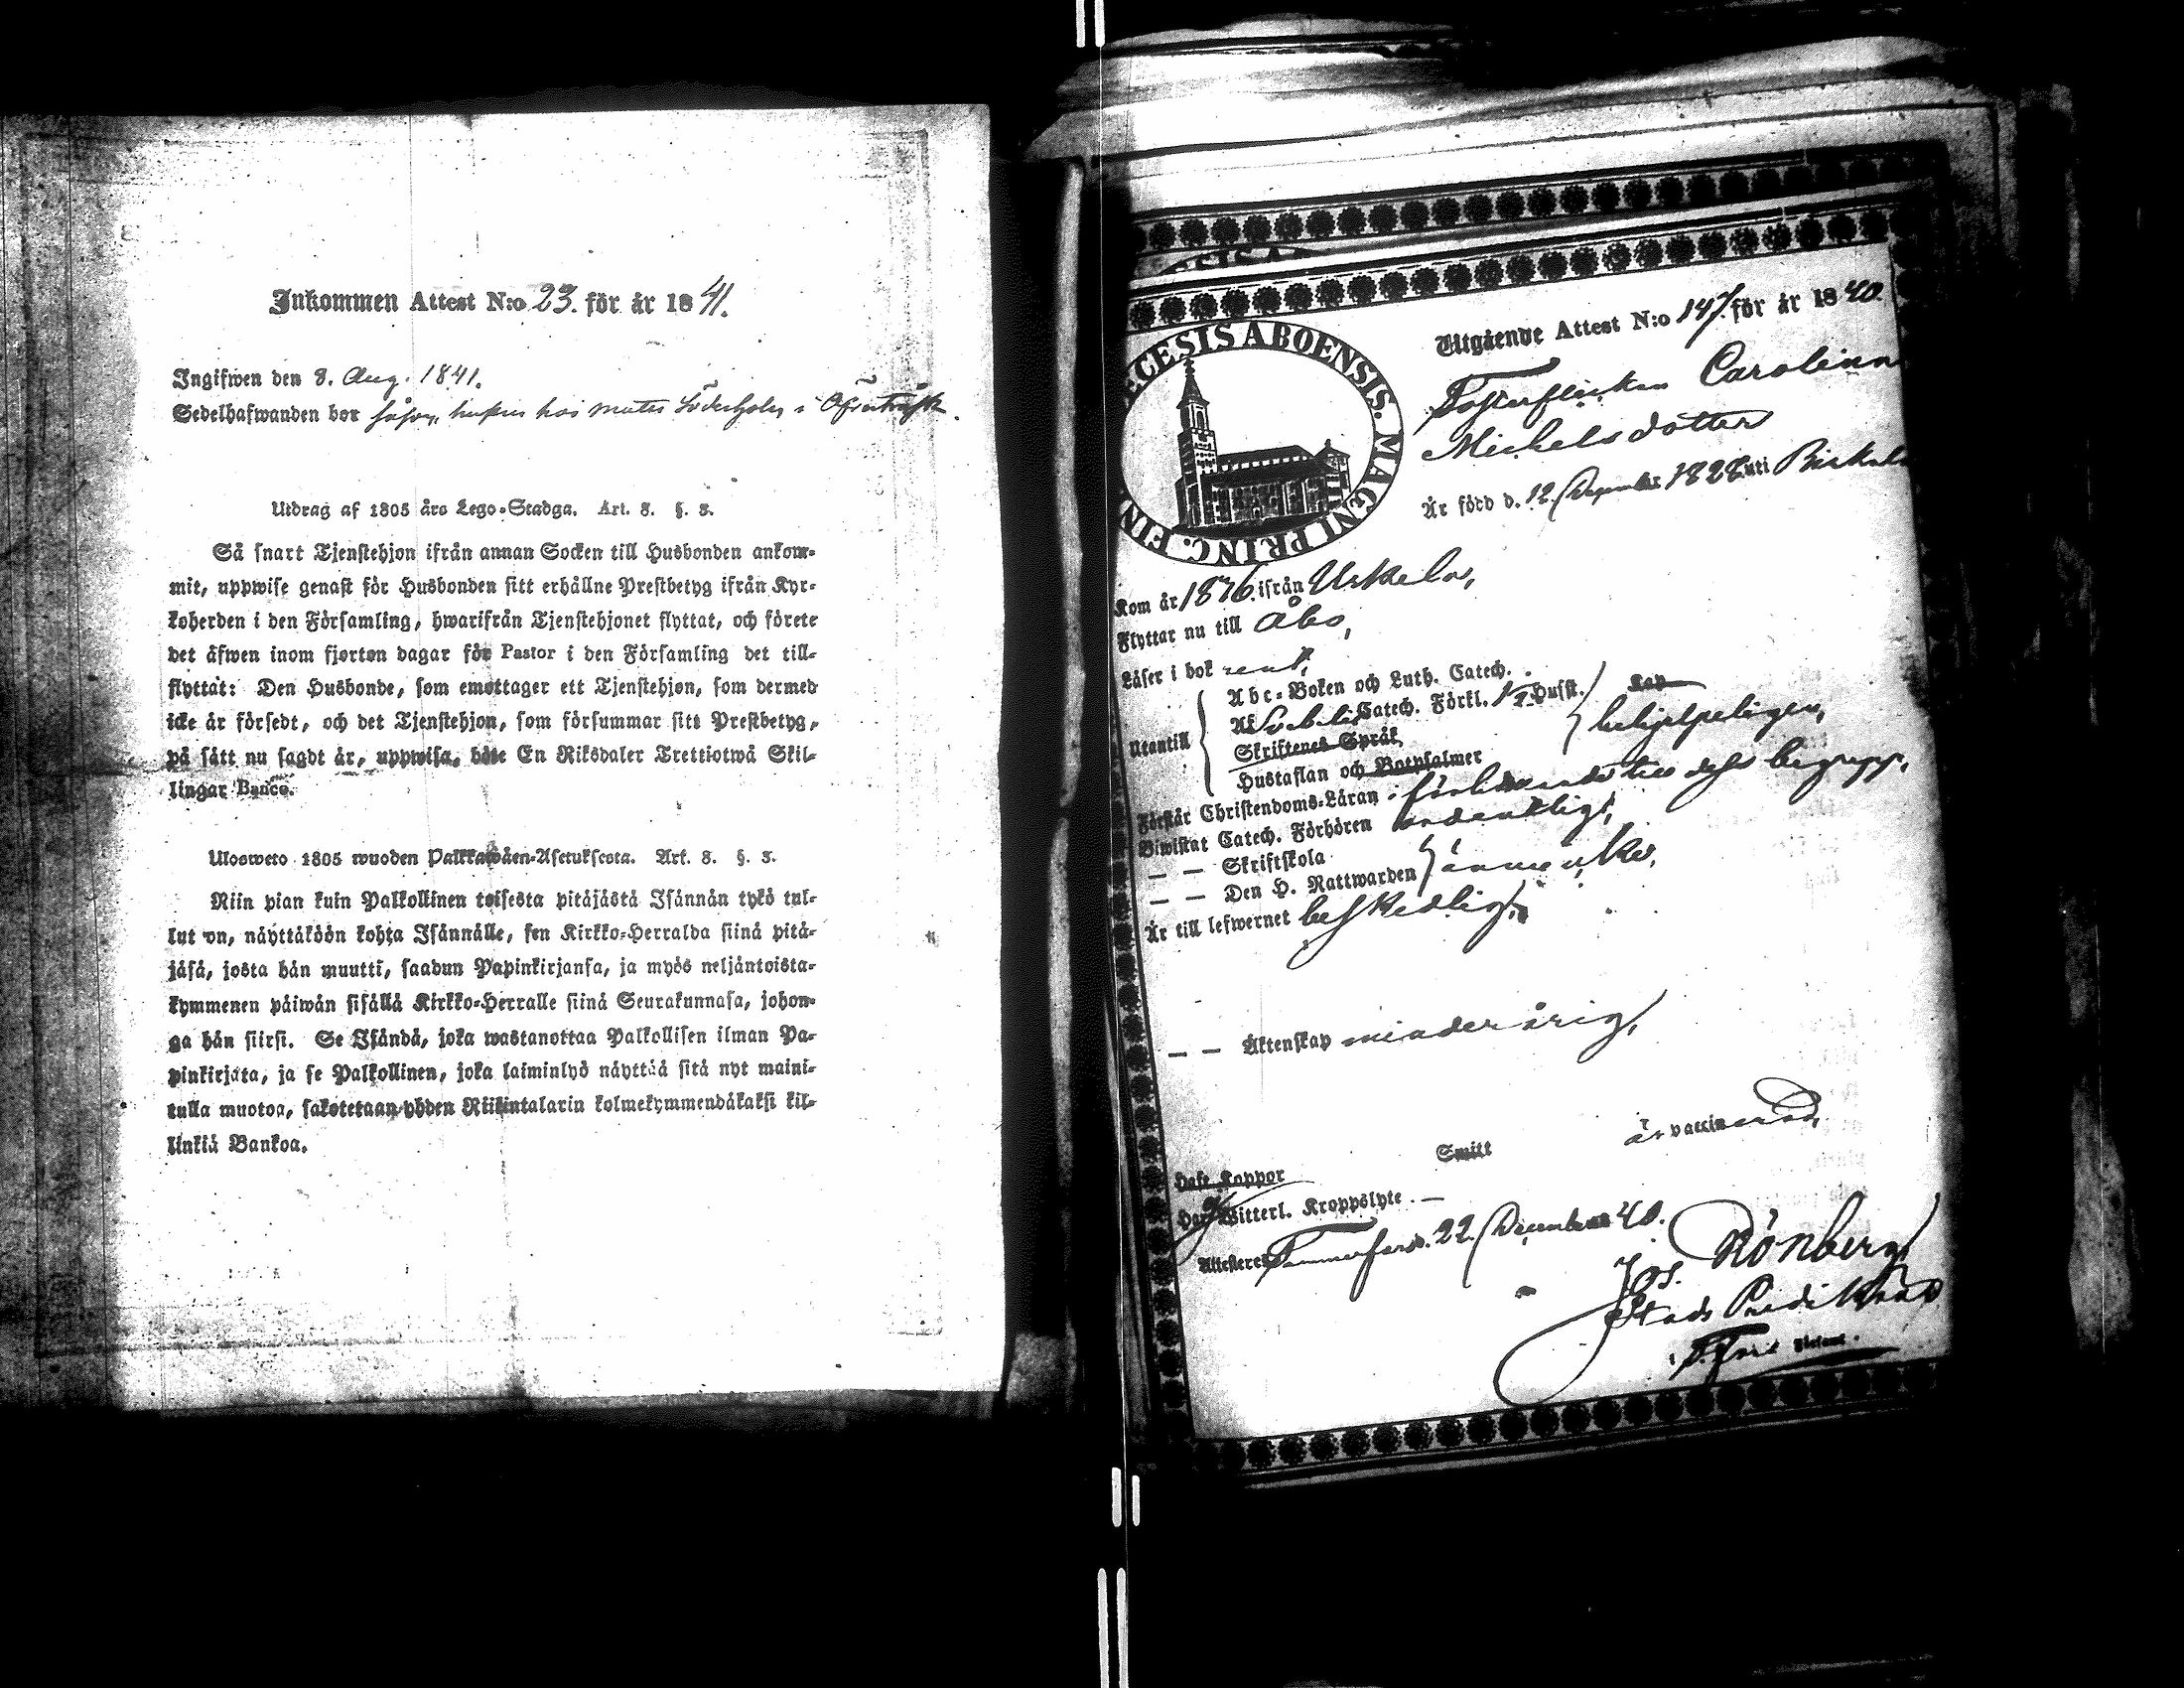 Inkommen Attest N:o 23. för år 1841.
Ingifwen den 8. Aug. 1841.
Sedelhafwanden bor hos i
Utdrag af 1805 års Lego-Stadga. Art. 8. §. 3.
Så snart Tjenstehjon ifrån annan Socken till Husbonden ankom-
mit, uppwise genast för Husbonden sitt erhållne Prestbetyg ifrån Kyr-
koherden i den Församling, hwarifrån Tjenstehjonet flyttat, och förete
det äfwen inom fjorton dagar för Pastor i den Församling det till-
flyttat: Den Husbonde, som emottager ett Tjenstehjon, som dermed
icke är försedt, och det Tjenstehjon, som försummar sitt Prestbetyg,
på sätt nu sagdt är, uppwisa, böte En Riksdaler Trettiotwå Skil-
lingar Banco.
Ulosweto 1805 wuoden Palkkawäen-Asetuksesta. Art. 8. §. 3.
Niin pian kuin Palkollinen toisesta pitäjästä Isännän tykö tul-
lut on, näyttäköön kohta Isännälle, sen Kirkko-Herralda siinä pitä-
jäsä, josta hän muutti, saadun Papinkirjansa, ja myös neljäntoista-
kymmenen päiwän sisällä Kirkko-Herralle siinä Seurakunnasa, johon-
ga hän siirsi. Se Isändä, joka wastanottaa Palkollisen ilman Pa-
pinkirjata, ja se Palkollinen, joka laiminlyö näyttää sitä nyt maini-
tulla muotoa, sakotetaan yhden Riikintalarin kolmekymmendäkaksi kil-
linkiä Bankoa.
ECESIS ABOENSIS. MAGNI PRINC. FIN
Utgående Attest N:o 147. för år 1840.
Fosterflickan Carolina
Michelsdotter
Är född d. 12 December 1828 uti Birkala
Kom år 1836 ifrån Urkela,
Flyttar nu till Åbo,
Läser i bok rent,
Utantill
Abc-Boken och Luth. Catech.
Af Svebelii Catech. Förkl. Hufst.
Kan
behjelpeligen,
Skriftenes Språk
Hustaflan och Botpsalmer
Förstår Christendoms-Läran till dess begrepp,
Biwistat Catech. Förhören ordentligt,
— — Skriftskola
— — Den H. Nattwarden
Är till lefwernet beskedlig,
— — Äktenskap minderårig,
Haft Koppor Smitt är vaccinerad,
Har Witterl. Kroppslyte. —
Attesterer Tammerfors d. 22 December 40.
Jos. Rönberg
Stads Predikant